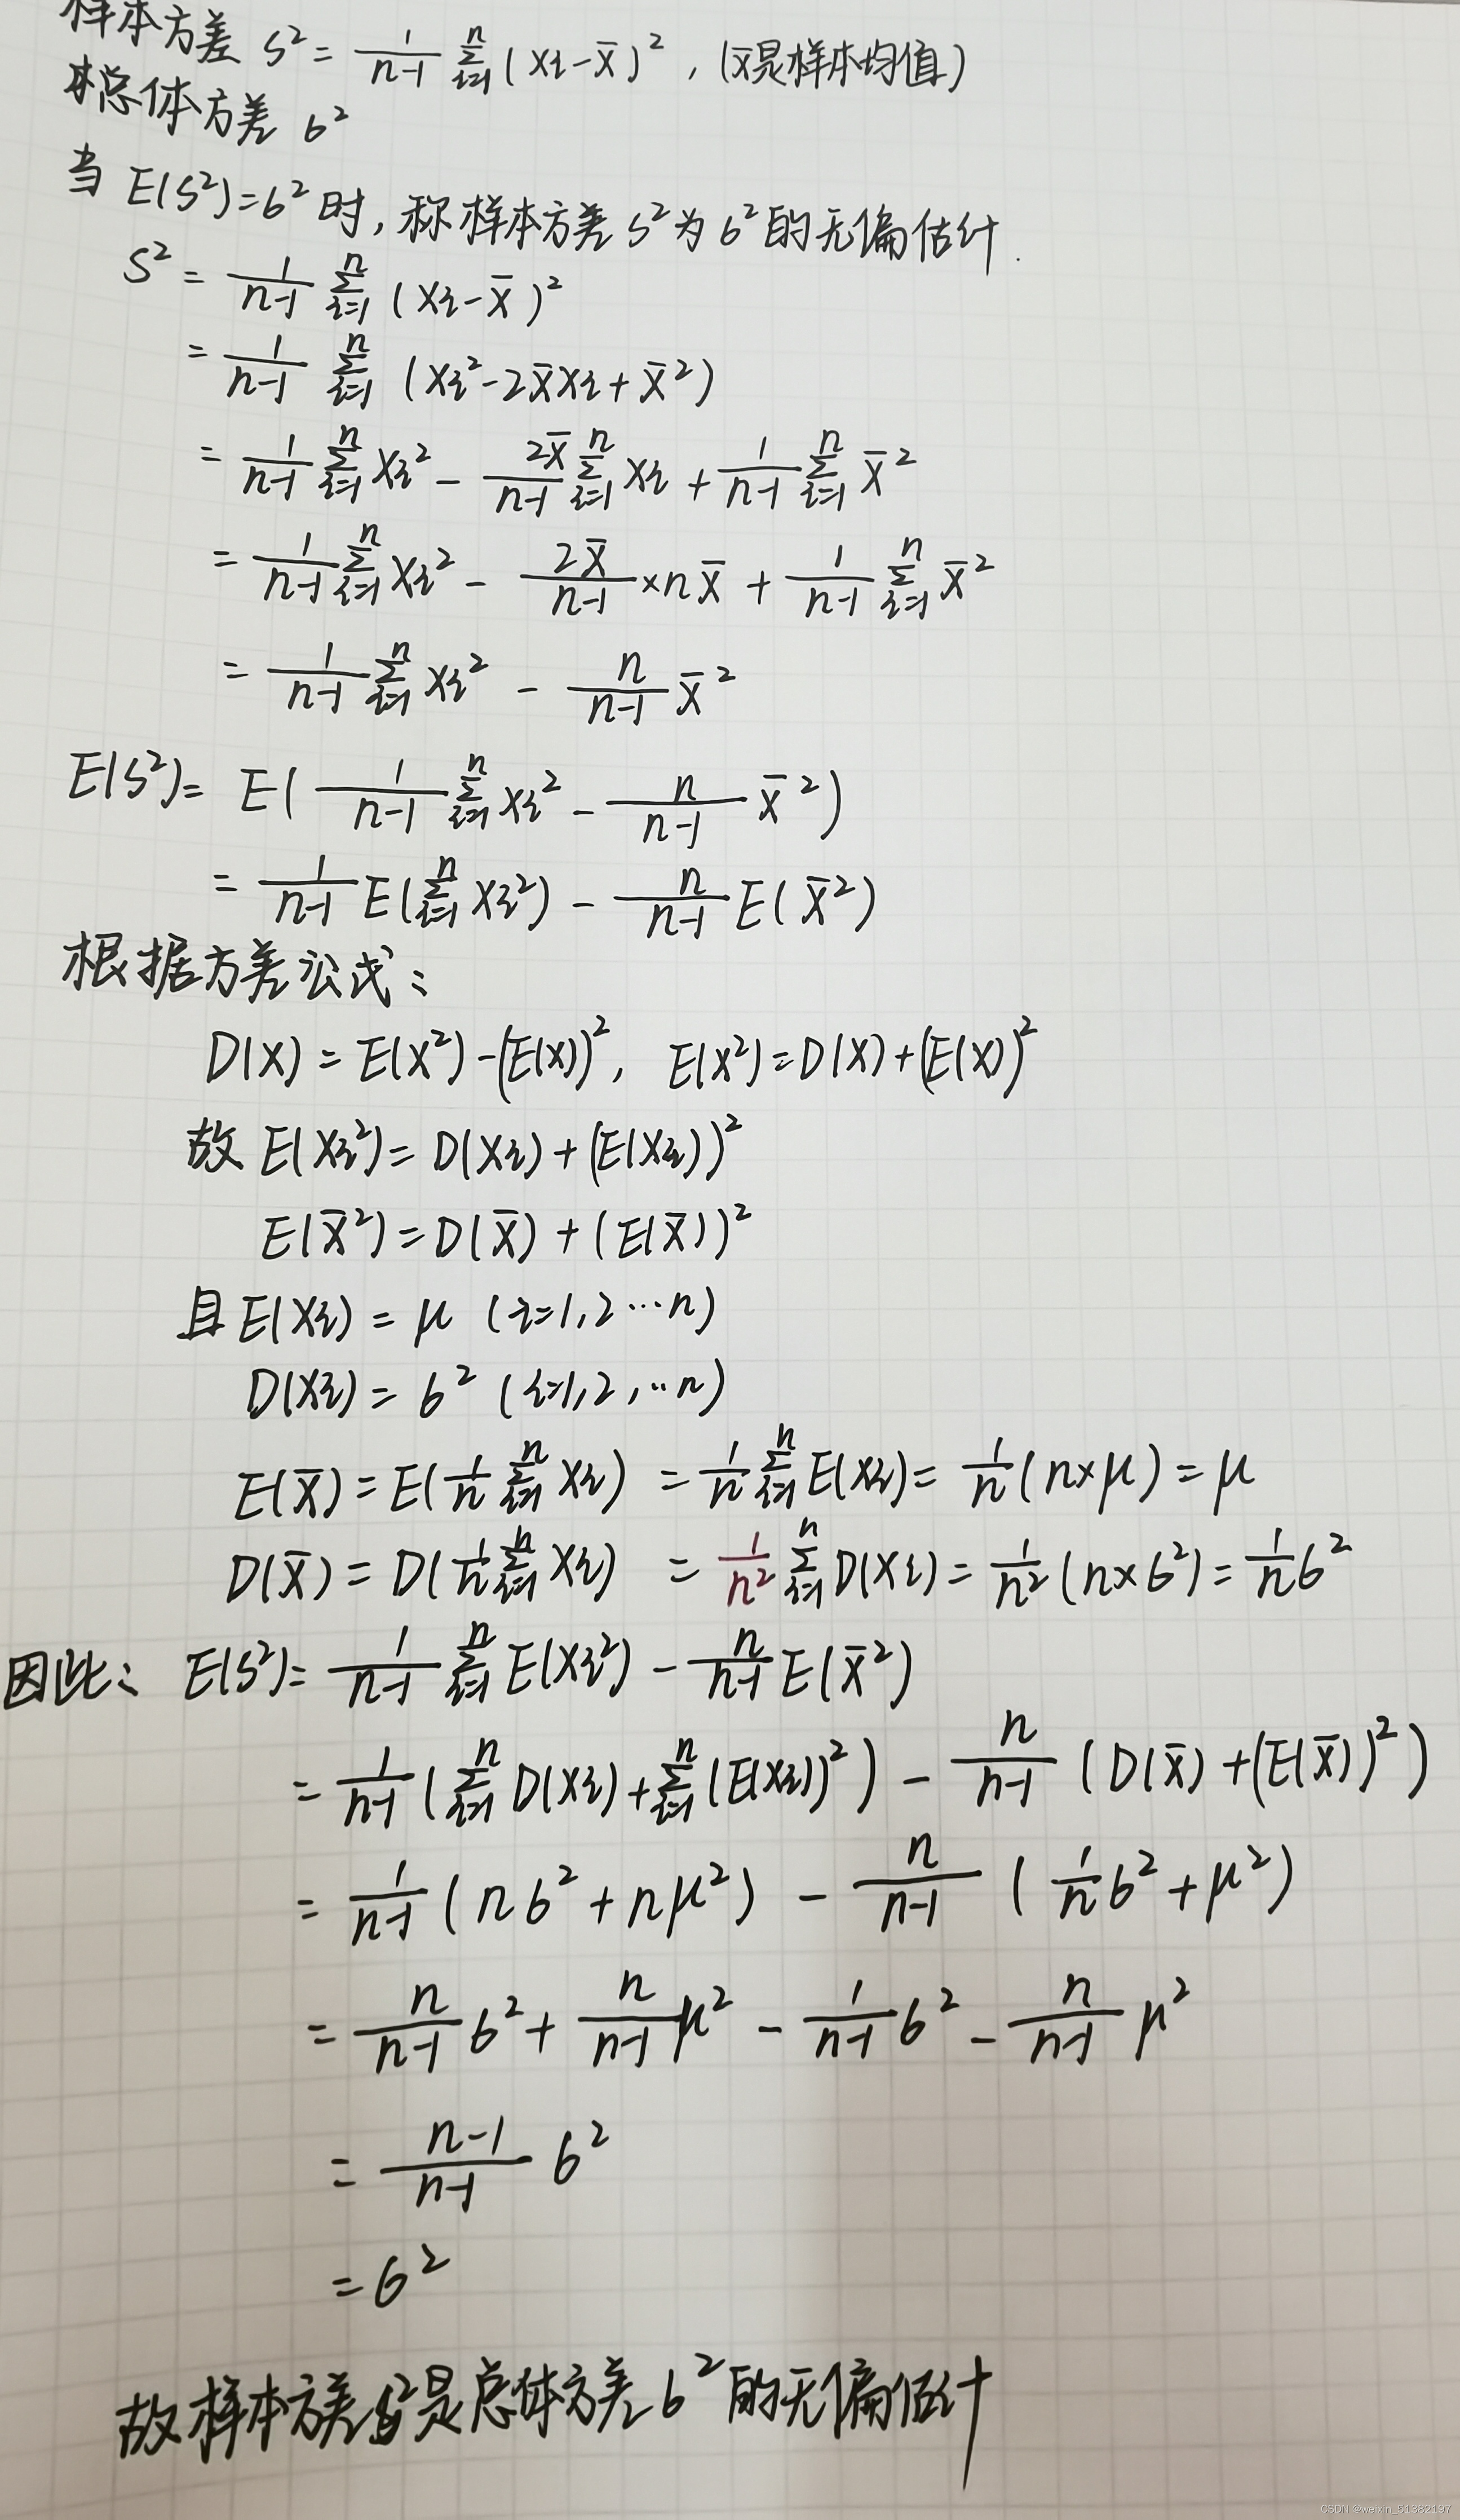 样本方差 S² = 1/(n-1) Σ_{i=1}^{n} (Xi - X̄)², (X̄是样本均值)
总体方差 σ²
当 E(S²)=σ² 时,称样本方差 S² 为 σ² 的无偏估计.
S² = 1/(n-1) Σ_{i=1}^{n} (Xi - X̄)²
= 1/(n-1) Σ_{i=1}^{n} (Xi² - 2X̄Xi + X̄²)
= 1/(n-1) Σ_{i=1}^{n} Xi² - 2X̄/(n-1) Σ_{i=1}^{n} Xi + 1/(n-1) Σ_{i=1}^{n} X̄²
= 1/(n-1) Σ_{i=1}^{n} Xi² - 2X̄/(n-1) × nX̄ + 1/(n-1) Σ_{i=1}^{n} X̄²
= 1/(n-1) Σ_{i=1}^{n} Xi² - n/(n-1) X̄²
E(S²) = E( 1/(n-1) Σ_{i=1}^{n} Xi² - n/(n-1) X̄² )
= 1/(n-1) E(Σ_{i=1}^{n} Xi²) - n/(n-1) E(X̄²)
根据方差公式:
D(X) = E(X²) - (E(X))², E(X²) = D(X) + (E(X))²
故 E(Xi²) = D(Xi) + (E(Xi))²
E(X̄²) = D(X̄) + (E(X̄))²
且 E(Xi) = μ (i=1,2…n)
D(Xi) = σ² (i=1,2,…n)
E(X̄) = E(1/n Σ_{i=1}^{n} Xi) = 1/n Σ_{i=1}^{n} E(Xi) = 1/n (n×μ) = μ
D(X̄) = D(1/n Σ_{i=1}^{n} Xi) = 1/n² Σ_{i=1}^{n} D(Xi) = 1/n² (n×σ²) = 1/n σ²
因此: E(S²) = 1/(n-1) Σ_{i=1}^{n} E(Xi²) - n/(n-1) E(X̄²)
= 1/(n-1) (Σ_{i=1}^{n} D(Xi) + Σ_{i=1}^{n} (E(Xi))²) - n/(n-1) (D(X̄) + (E(X̄))²)
= 1/(n-1) (nσ² + nμ²) - n/(n-1) (1/n σ² + μ²)
= n/(n-1) σ² + n/(n-1) μ² - 1/(n-1) σ² - n/(n-1) μ²
= (n-1)/(n-1) σ²
= σ²
故样本方差 S² 是总体方差 σ² 的无偏估计
CSDN @weixin_51382197